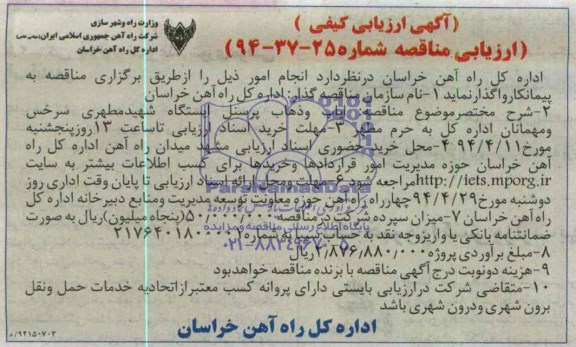 وزارت راه وشهر سازی
شرکت راه آهن جمهوری اسلامی ایران(سهامی خاص)
اداره کل راه آهن خراسان
(آگهی ارزیابی کیفی )
(ارزیابی مناقصه شماره۲۵-۳۷-۹۴)
اداره کل راه آهن خراسان درنظردارد انجام امور ذیل را ازطریق برگزاری مناقصه به
پیمانکارواگذارنماید ۱-نام سازمان مناقصه گذار: اداره کل راه آهن خراسان
۲-شرح مختصرموضوع مناقصه: ایاب وذهاب پرسنل ایستگاه شهیدمطهری سرخس
ومهمانان اداره کل به حرم مطهر ۳-مهلت خرید اسناد ارزیابی تاساعت ۱۳روزپنجشنبه
مورخ۹۴/۴/۱۱ ۴-محل خرید حضوری اسناد ارزیابی مشهد میدان راه آهن اداره کل راه
آهن خراسان حوزه مدیریت امور قراردادها وخریدها برای کسب اطلاعات بیشتر به سایت
http://iets.mporg.irمراجعه شود ۶-مهلت ومحل ارائه اسناد ارزیابی تا پایان وقت اداری روز
دوشنبه مورخ۹۴/۴/۲۹چهارراه راه آهن حوزه معاونت توسعه مدیریت ومنابع دبیرخانه اداره کل
راه آهن خراسان ۷-میزان سپرده شرکت در مناقصه ۵۰/۰۰۰/۰۰۰(پنجاه میلیون)ریال به صورت
ضمانتنامه بانکی یا واریزوجه نقد به حساب سیبا به شماره
۸-مبلغ برآوردی پروژه۲/۸۷۶/۸۸۰/۰۰۰ریال
۹-هزینه دونوبت درج آگهی مناقصه با برنده مناقصه خواهدبود
۱۰-متقاضی شرکت درارزیابی بایستی دارای پروانه کسب معتبرازاتحادیه خدمات حمل ونقل
برون شهری ودرون شهری باشد
اداره کل راه آهن خراسان
۹۴۱۵۰۷۰۳/د
ParsNamadData
پایگاه اطلاع رسانی مناقصه و مزایده
۰۲۱-۸۸۳۴۹۶۷۰-۵